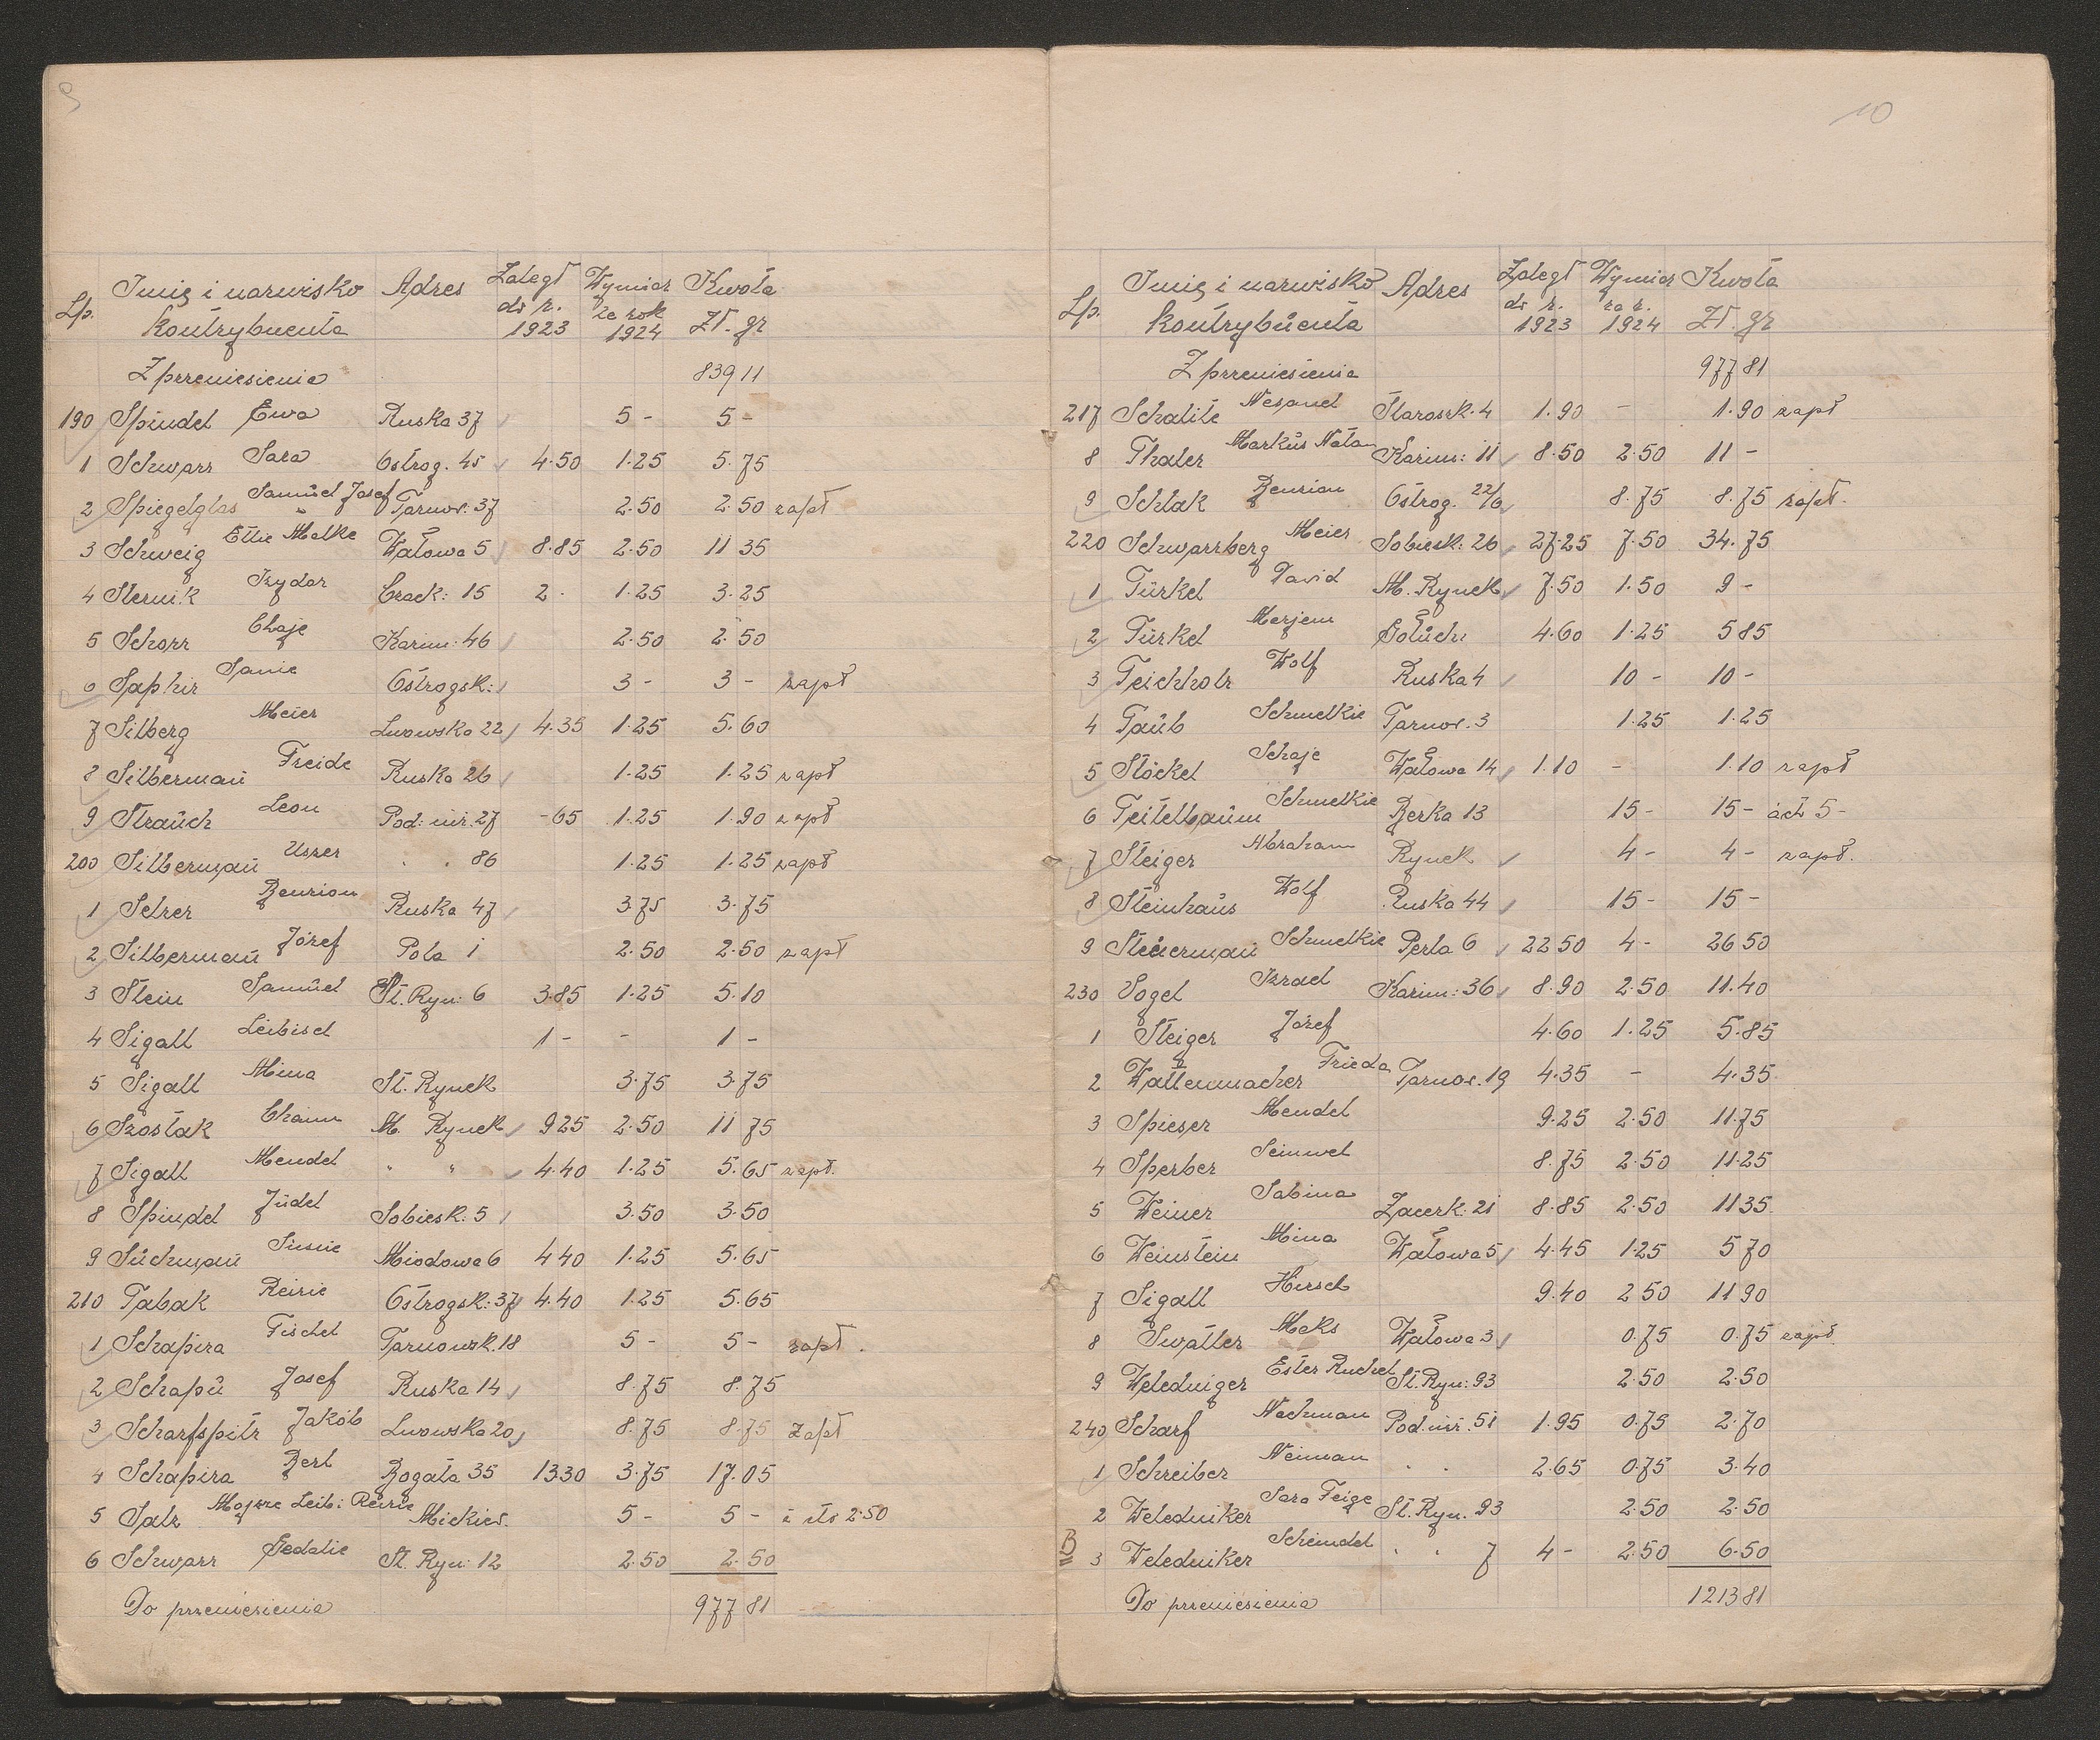 9
Lp. Imię i nazwisko kontrybuenta Adres Zaległ do r. 1923 Wymiar za rok 1924 Kwota Zł. gr
Z przeniesienia 839 11
190 Spindel Ewa Ruska 37 5 - 5 -
1 Schwarz Sara Ostrog. 45 4.50 1.25 5.75
2 Spiegelglas Samuel Josef Tarnow. 37 2.50 2.50 zapł
3 Schweig Ettie Malke Wałowa 5 8.85 2.50 11 35
4 Sternik Izydor Crack: 15 2 . 1.25 3.25
5 Schorr Chaje Karim: 46 2.50 2.50
6 Saphir Sanie Ostrogsk: 3 - 3 - zapł
7 Silberg Meier Lwowska 22 4.35 1.25 5.60
8 Silberman Freide Ruska 26 1.25 1.25 zapł
9 Strauch Leon Pod: mr. 27 -65 1.25 1.90 zapł
200 Silberman Uszer . . 86 1.25 1.25 zapł
1 Selzer Benzion Ruska 47 3.75 3.75
2 Silberman Józef Pola 1 2.50 2.50 zapł
3 Stein Samuel St. Ryn: 6 3.85 1.25 5.10
4 Sigall Leibisch 1 - - 1 -
5 Sigall Mina St. Rynek 3.75 3.75
6 Szostak Chaim M. Rynek 925 2.50 11 75
7 Sigall Mendel " " 4.40 1.25 5.65 zapł.
8 Spindel Judel Sobiesk: 5 3.50 3.50
9 Suchman Sussie Miodowa 6 4 40 1.25 5.65
210 Tabak Reizie Ostrogsk: 37 4.40 1.25 5.65
1 Schapira Fischel Tarnowsk. 18 5 - 5 - zapł .
2 Schapu Josef Ruska 14 8.75 8.75
3 Scharfspitz Jakób Lwowska 20 8.75 8.75 zapł
4 Schapira Berl Bogata 35 1330 3.75 17.05
5 Salz Mojsze Leib i Reizie Mickiew. 5 - 5 - 2.50
6 Schwarz Gedalie St. Ryn: 12 2.50 2.50
Do przeniesienia 977 81
10
Lp. Imię i nazwisko kontrybuenta Adres Zaległ do r. 1923 Wymiar za r. 1924 Kwota Zł. gr
Z przeniesienia 977 81
217 Schalite Nesanel Starosk. 4 1.90 - 1.90 zapł
8 Thaler Markus Natan Karim: 11 8.50 2.50 11 -
9 Schlak Benzion Ostrog. 22/6 8.75 8.75 zapł.
220 Schwarzberg Meier Sobiesk: 26 27.25 7.50 34.75
1 Türkel David M. Rynek 7.50 1.50 9 -
2 Türkel Merjem Gołuch 4.60 1.25 5 85
3 Teichholz Wolf Ruska 4 10 - 10 -
4 Taub Schmelkie Tarnow. 3 1.25 1.25
5 Stöckel Schaje Wałowa 14 1.10 - 1.10 zapł
6 Teitelbaum Schmelkie Berka 13 15 - 15 - 5 -
7 Steiger Abraham Rynek 4 - 4 - zapł.
8 Steinhaus Wolf Ruska 44 15 - 15 -
9 Steuerman Schmelkie Perla 6 22 50 4 - 26 50
230 Vogel Israel Karim: 36 8.90 2.50 11.40
1 Steiger Józef 4.60 1.25 5.85
2 Wattenmacher Frieda Tarnow. 19 4.35 - 4.35
3 Spieser Mendel 9.25 2.50 11.75
4 Sperber Seinwel 8.75 2.50 11.25
5 Weiner Sabina Zacerk. 21 8.85 2.50 11 35
6 Weinstein Mina Wałowa 5 4.45 1.25 5 70
7 Sigall Hersch 9.40 2 50 11 90
8 Swatler Maks Wałowa 3 0.75 0.75 zapł.
9 Weledniger Ester Ruchel St. Ryn: 93 2.50 2.50
240 Scharf Nachman Pod. mr. 51 1.95 0.75 2.70
1 Schreiber Neiman . . 2.65 0.75 3.40
2 Weledniker Sara Feige St. Ryn. 93 2.50 2.50
B 3 Weledniker Scheindel . . 7 4 - 2.50 6.50
Do przeniesienia 1213 81